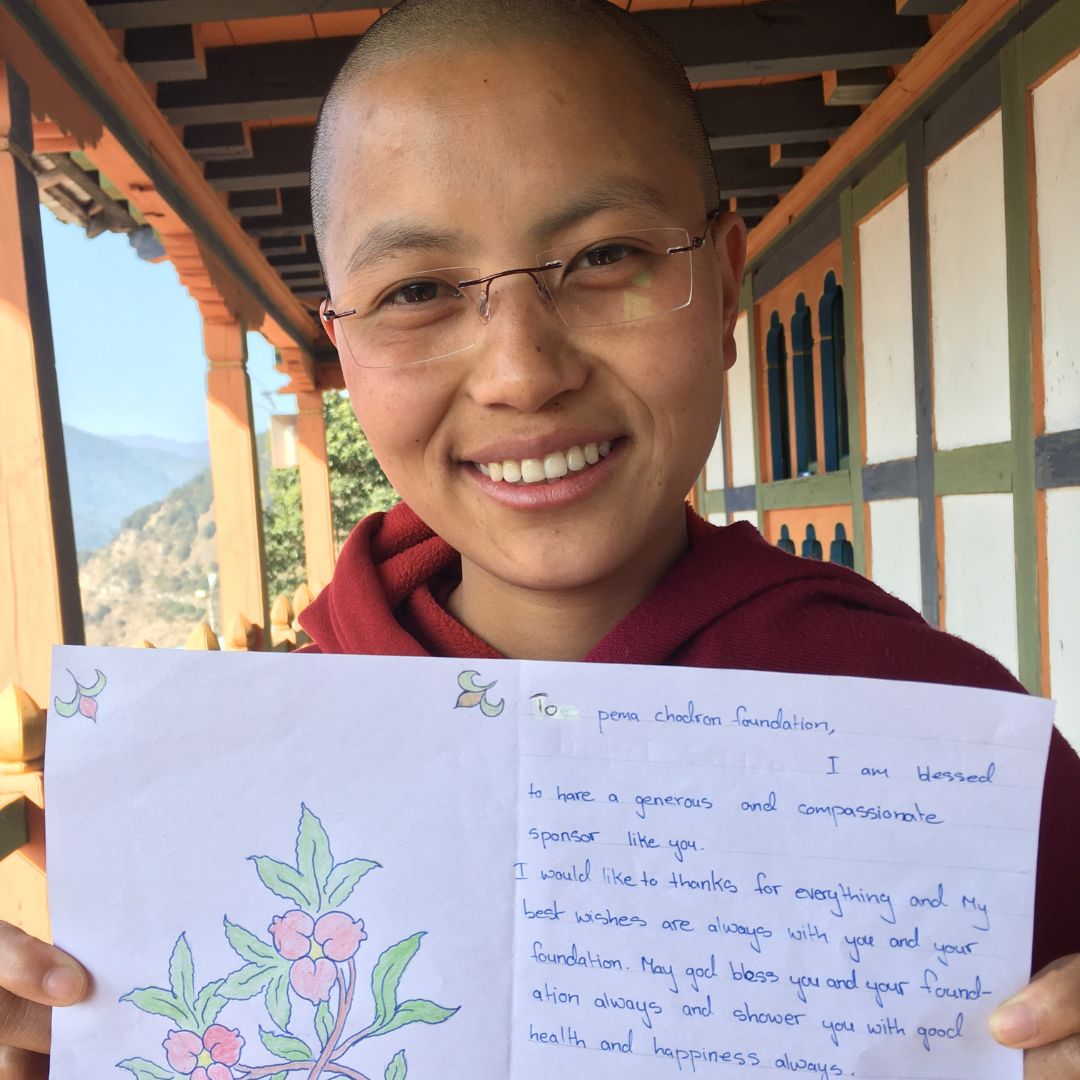 To pema chodron foundation,
I am blessed
to have a generous and compassionate
sponsor like you.
I would like to thanks for everything and My
best wishes are always with you and your
foundation. May god bless you and your found-
ation always and shower you with good
health and happiness always.